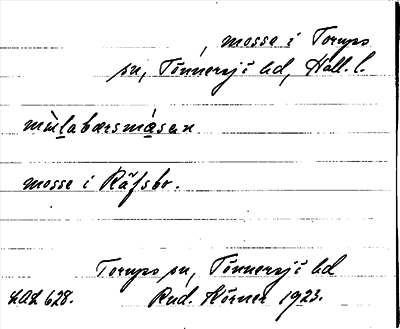 , mosse i Torups
sn, Tönnersjö hd, Hall. l.
mùlabærsmåsen
mosse i Räfsbo.
Torups sn, Tönnersjö hd
LAL 628. Rud. Körner 1923.